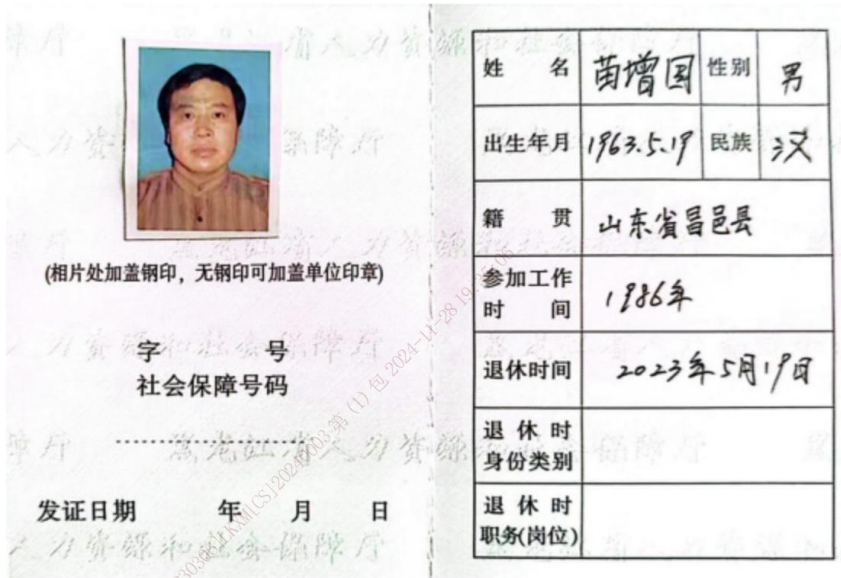 (相片处加盖钢印，无钢印可加盖单位印章)
字 号
社会保障号码
发证日期 年 月 日
姓 名 苗增国 性别 男
出生年月 1963.5.19 民族 汉
籍 贯 山东省昌邑县
参加工作时 间 1986年
退休时间 2023年5月19日
退 休 时身份类别
退 休 时职务(岗位)
黑龙江省人力资源和社会保障厅